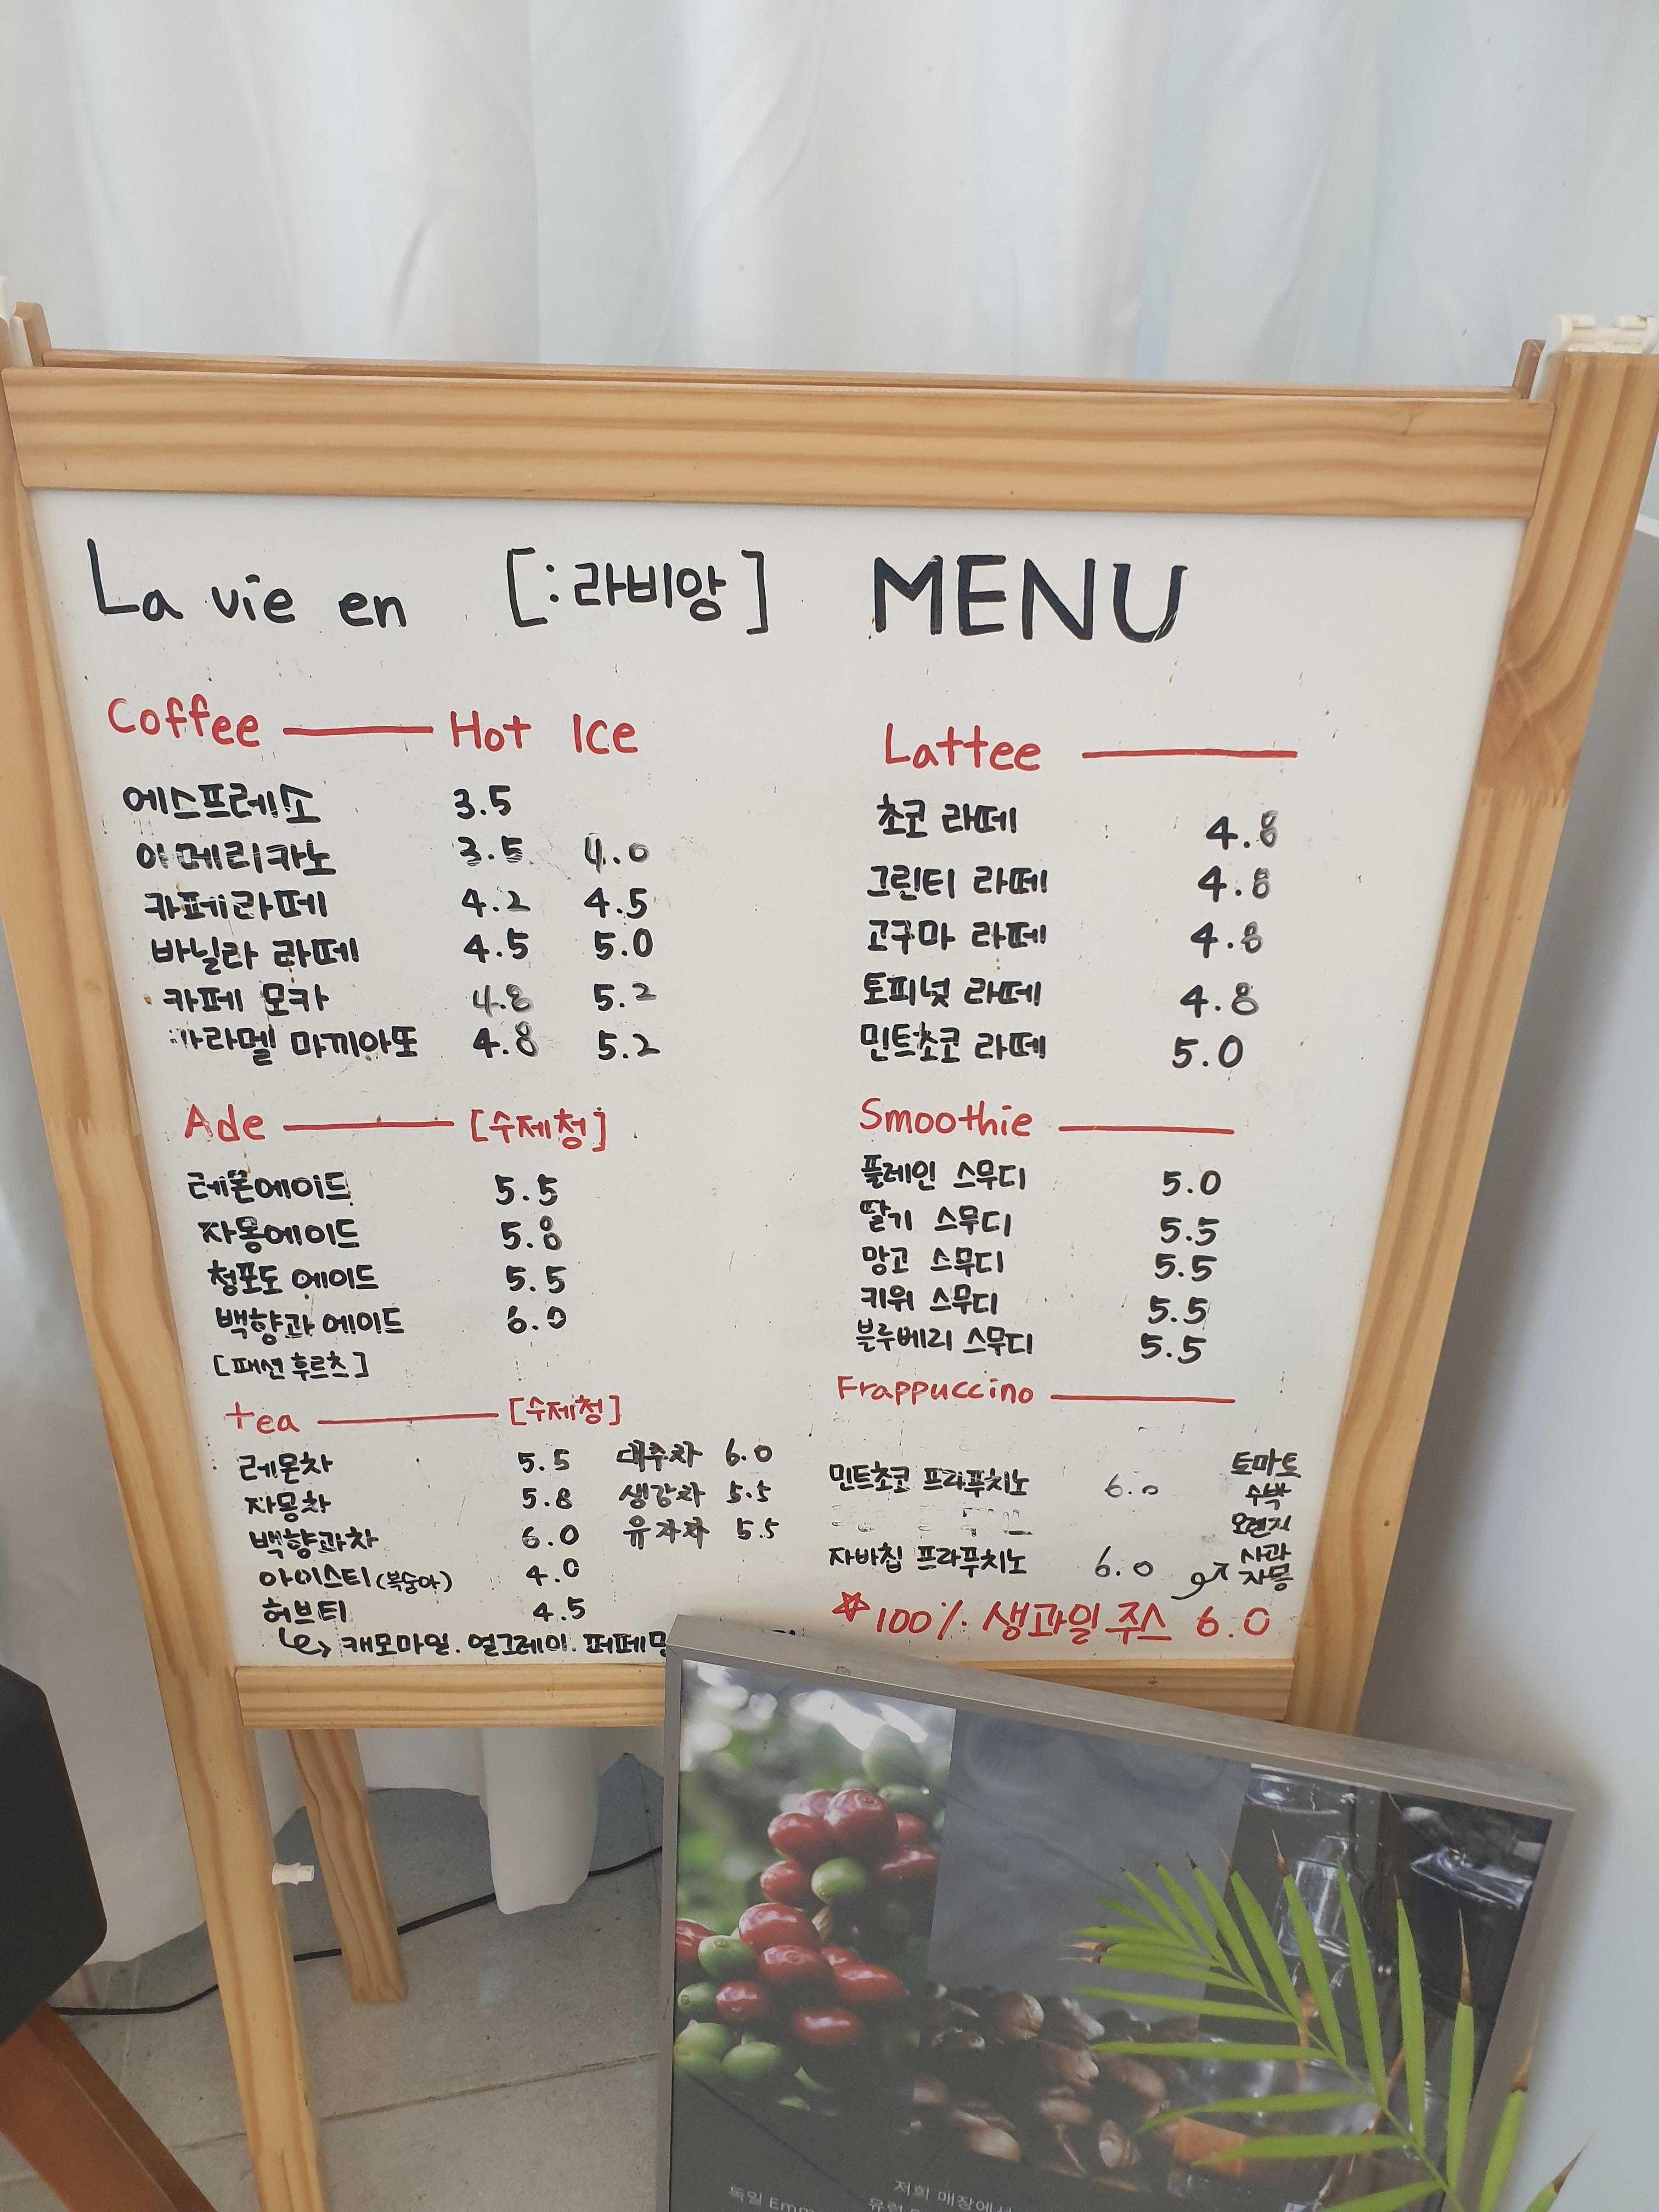 La vie en [:라비앙] MENU
Coffee Hot Ice
에스프레소 3.5
아메리카노 3.5 4.0
카페라떼 4.2 4.5
바닐라 라떼 4.5 5.0
카페 모카 4.8 5.2
카라멜 마끼아또 4.8 5.2
Ade [수제청]
레몬에이드 5.5
자몽에이드 5.8
청포도 에이드 5.5
백향과 에이드 6.0
[패션후르츠]
tea [수제청]
레몬차 5.5 대추차 6.0
자몽차 5.8 생강차 5.5
백향과차 6.0 유자차 5.5
아이스티(복숭아) 4.0
허브티 4.5
캐모마일. 얼그레이. 퍼페민
Lattee
초코 라떼 4.8
그린티 라떼 4.8
고구마 라떼 4.8
토피넛 라떼 4.8
민트초코 라떼 5.0
Smoothie
플레인 스무디 5.0
딸기 스무디 5.5
망고 스무디 5.5
키위 스무디 5.5
블루베리 스무디 5.5
Frappuccino
민트초코 프라푸치노 6.0
자바칩 프라푸치노 6.0
토마토
수박
오렌지
사과
자몽
100% 생과일 주스 6.0
저희 매장에서
독일 Emm
유럽